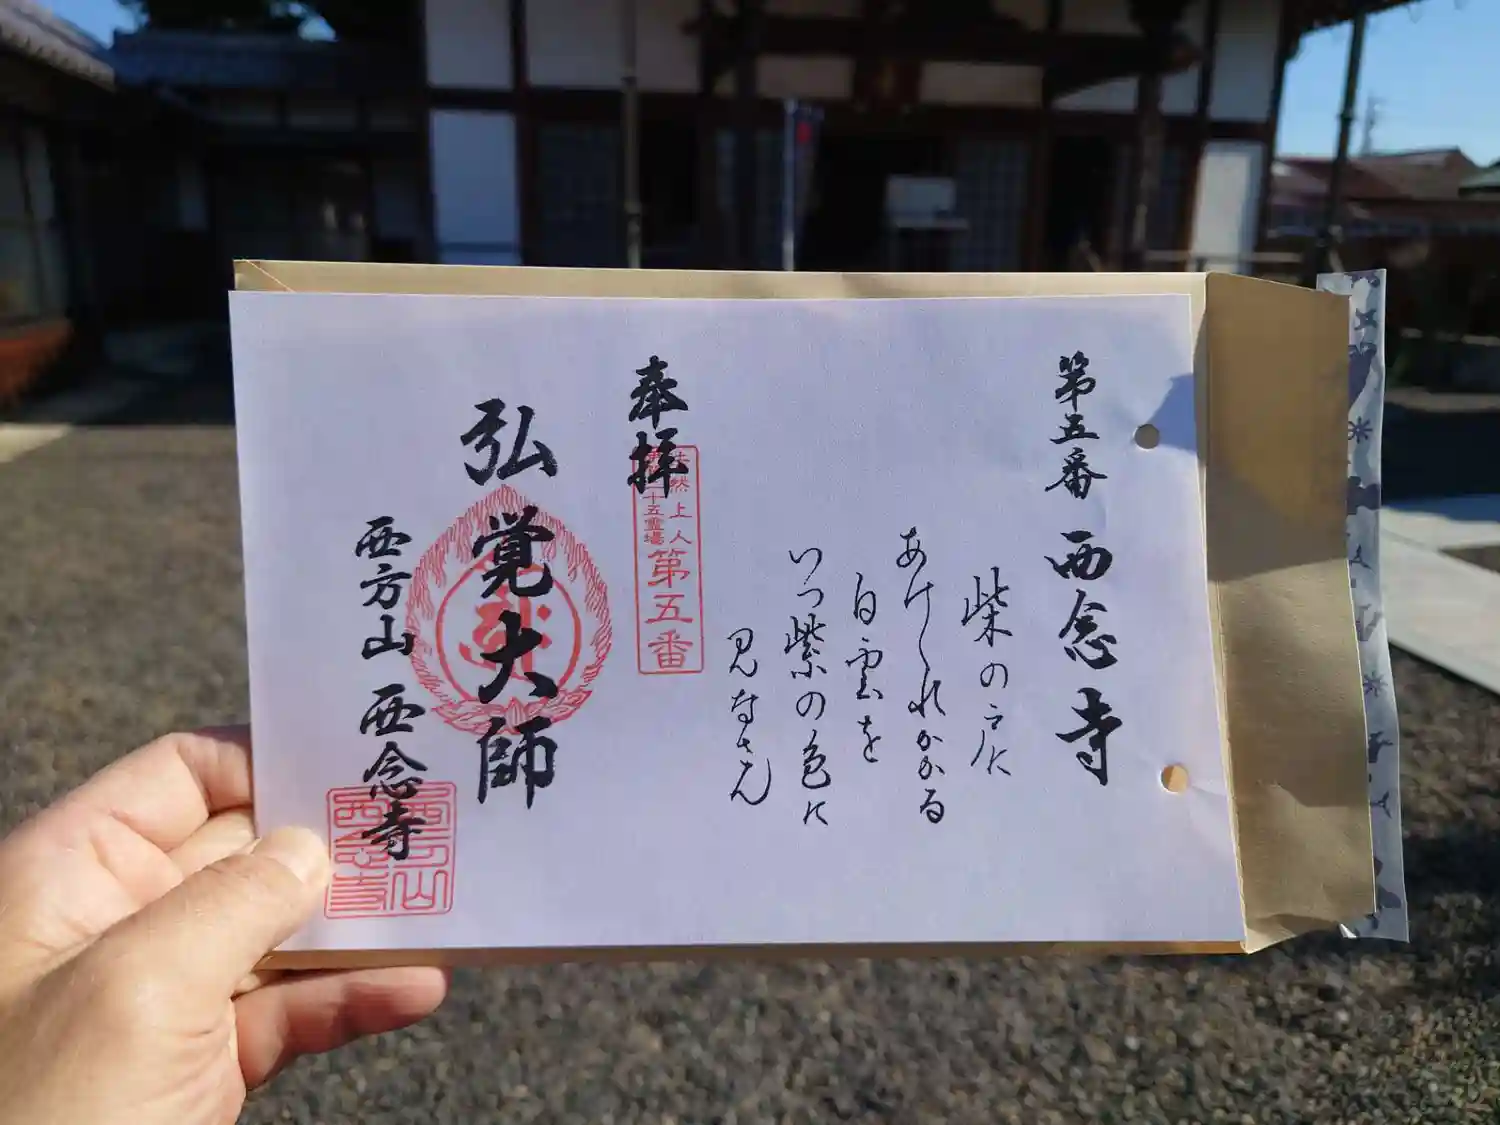 第五番 西念寺
柴の戸に
あけくれかかる
白雲を
いつ紫の色に
見なさん
奉拝
法然上人
二十五霊場
第五番
弘覚大師
西方山 西念寺
西方山
西念寺